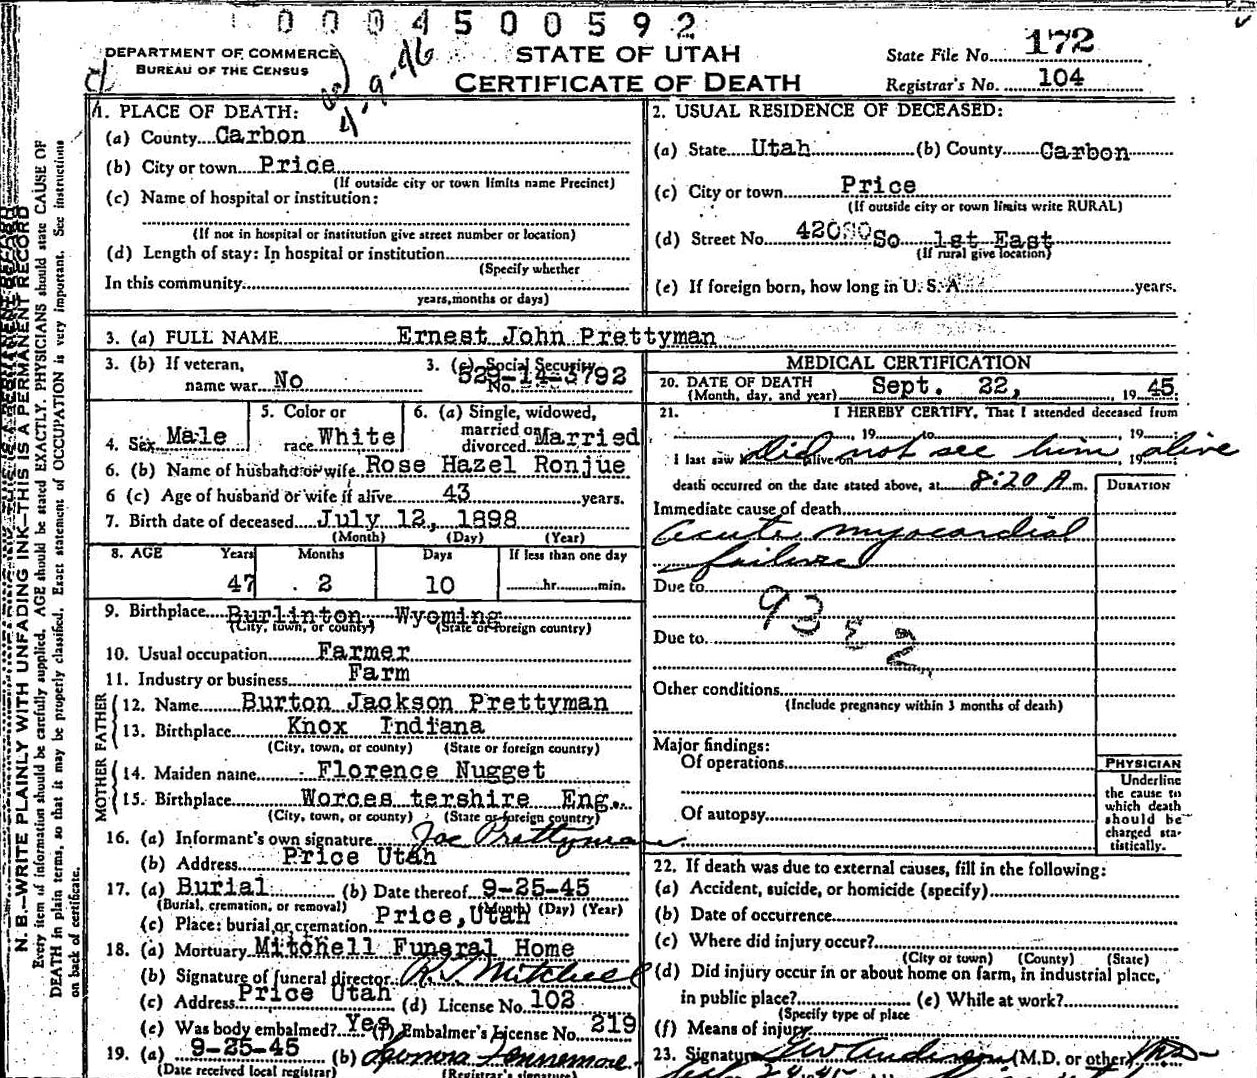 0004500592
DEPARTMENT OF COMMERCE
BUREAU OF THE CENSUS
4-9-46
STATE OF UTAH
CERTIFICATE OF DEATH
State File No. 172
Registrar's No. 104
1. PLACE OF DEATH:
(a) County Carbon
(b) City or town Price
(If outside city or town limits name Precinct)
(c) Name of hospital or institution:
(If not in hospital or institution give street number or location)
(d) Length of stay: In hospital or institution
(Specify whether
In this community
years, months or days)
2. USUAL RESIDENCE OF DECEASED:
(a) State Utah (b) County Carbon
(c) City or town Price
(If outside city or town limits write RURAL)
(d) Street No. So 1st East
(If rural give location)
(e) If foreign born, how long in U. S. A. years.
3. (a) FULL NAME Ernest John Prettyman
3. (b) If veteran,
name war No
3. (c) Social Security
No. 529-14-3792
4. Sex Male
5. Color or
race White
6. (a) Single, widowed,
married or
divorced Married
6. (b) Name of husband or wife Rose Hazel Ronjue
6 (c) Age of husband or wife if alive 43 years.
7. Birth date of deceased July 12, 1898
(Month) (Day) (Year)
8. AGE Years Months Days If less than one day
47 2 10 hr. min.
9. Birthplace Burlinton, Wyoming
(City, town, or county) (State or foreign country)
10. Usual occupation Farmer
11. Industry or business Farm
FATHER
12. Name Burton Jackson Prettyman
13. Birthplace Knox Indiana
(City, town, or county) (State or foreign country)
MOTHER
14. Maiden name Florence Nugget
15. Birthplace Worces tershire Eng.
(City, town, or county) (State or foreign country)
16. (a) Informant's own signature Joe Prettyman
(b) Address Price Utah
17. (a) Burial (b) Date thereof 9-25-45
(Burial, cremation, or removal) (Month) (Day) (Year)
(c) Place: burial or cremation Price, Utah
18. (a) Mortuary Mitchell Funeral Home
(b) Signature of funeral director Mitchell
(c) Address Price Utah (d) License No. 102
(e) Was body embalmed? Yes (f) Embalmer's License No. 219
19. (a) 9-25-45 (b)
(Date received local registrar) (Registrar's signature)
MEDICAL CERTIFICATION
20. DATE OF DEATH Sept. 22, 1945
(Month, day, and year)
21. I HEREBY CERTIFY, That I attended deceased from
, 19 to , 19
I last saw h alive on , 19
Did not see him alive
death occurred on the date stated above, at 8:20 A m.
DURATION
Immediate cause of death
Acute myocardial
failure
Due to
93
Due to
2
Other conditions
(Include pregnancy within 3 months of death)
Major findings:
Of operations
Of autopsy
PHYSICIAN
Underline
the cause to
which death
should be
charged sta-
tistically.
22. If death was due to external causes, fill in the following:
(a) Accident, suicide, or homicide (specify)
(b) Date of occurrence
(c) Where did injury occur?
(City or town) (County) (State)
(d) Did injury occur in or about home on farm, in industrial place,
in public place? (e) While at work?
(Specify type of place
(f) Means of injury
23. Signature Anderson (M.D. or other)
N. B.—WRITE PLAINLY WITH UNFADING INK—THIS IS A PERMANENT RECORD
Every item of information should be carefully supplied. AGE should be stated EXACTLY. PHYSICIANS should state CAUSE OF
DEATH in plain terms, so that it may be properly classified. Exact statement of OCCUPATION is very important. See instructions
on back of certificate.